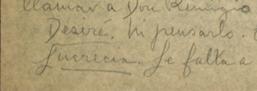 llamar a Don Remigio
Desiré. Ni pensarlo.
Lucrecia. Le falta a